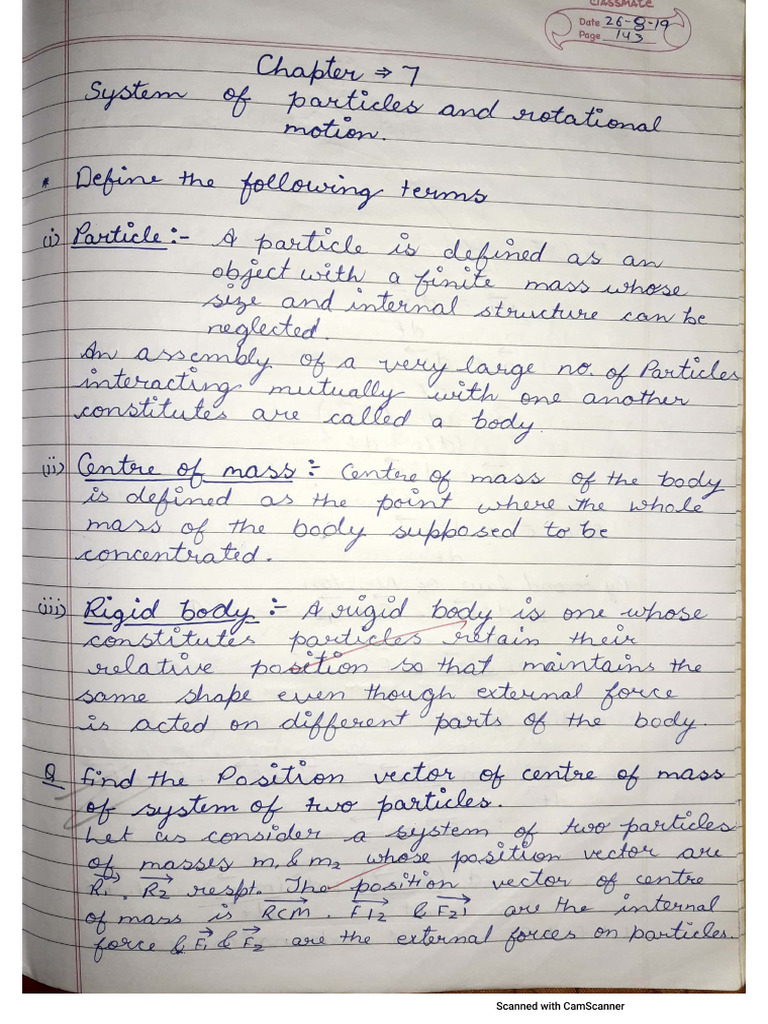 CLASSMATE
Date 26-8-19
Page 143
Chapter ⇒ 7
System of particles and rotational
motion.
* Define the following terms
(i) Particle :- A particle is defined as an
object with a finite mass whose
size and internal structure can be
neglected.
An assembly of a very large no. of Particles
interacting mutually with one another
constitutes are called a body.
(ii) Centre of mass :- Centre of mass of the body
is defined as the point where the whole
mass of the body supposed to be
concentrated.
(iii) Rigid body :- A rigid body is one whose
constitutes particles retain their
relative position so that maintains the
same shape even though external force
is acted on different parts of the body.
Q find the Position vector of centre of mass
of system of two particles.
Let us consider a system of two particles
of masses m₁ & m₂ whose position vector are
R₁⃗, R₂⃗ respt. The position vector of centre
of mass is R⃗CM. F⃗12 & F⃗21 are the internal
force & F⃗₁ & F⃗₂ are the external forces on particles.
Scanned with CamScanner